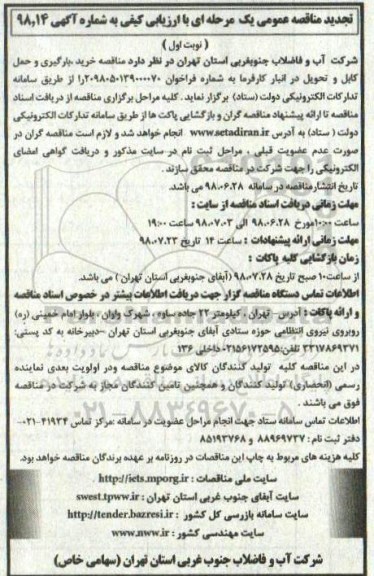 تجدید مناقصه عمومی یک مرحله ای با ارزیابی کیفی به شماره آگهی ۹۸,۱۴
( نوبت اول )
شرکت آب و فاضلاب جنوبغربی استان تهران در نظر دارد مناقصه خرید ،بارگیری و حمل
کابل و تحویل در انبار کارفرما به شماره فراخوان ۲۰۹۸۰۵۰۱۳۹۰۰۰۰۷۰را از طریق سامانه
تدارکات الکترونیکی دولت (ستاد) برگزار نماید . کلیه مراحل برگزاری مناقصه از دریافت اسناد
مناقصه تا ارائه پیشنهاد مناقصه گران و بازگشایی پاکت ها از طریق سامانه تدارکات الکترونیکی
دولت ( ستاد) به آدرس www.setadiran.ir انجام خواهد شد و لازم است مناقصه گران در
صورت عدم عضویت قبلی ، مراحل ثبت نام در سایت مذکور و دریافت گواهی امضای
الکترونیکی را جهت شرکت در مناقصه محقق سازند .
تاریخ انتشارمناقصه در سامانه ۹۸.۰۶.۲۸ می باشد.
مهلت زمانی دریافت اسناد مناقصه از سایت :
ساعت ۱۰:۰۰مورخ ۹۸.۰۶.۲۸ الی ۹۸.۰۷.۰۳ ساعت ۱۹:۰۰
مهلت زمانی ارائه پیشنهادات : ساعت ۱۴ تاریخ ۹۸.۰۷.۲۳
زمان بازگشایی کلیه پاکات :
از ساعت۱۰ صبح تاریخ ۹۸.۰۷.۲۸ (آبفای جنوبغربی استان تهران ) می باشد.
اطلاعات تماس دستگاه مناقصه گزار جهت دریافت اطلاعات بیشتر در خصوص اسناد مناقصه
و ارائه پاکات : آدرس تهران - کیلومتر ۲۲ جاده ساوه - شهرک واوان - بلوار امام خمینی (ره)
روبروی نیروی انتظامی حوزه ستادی آبفای جنوبغربی استان تهران –دبیرخانه به کد پستی:
۳۳۱۷۸۶۹۳۷۱ تلفن:۰۲۱۵۶۱۷۲۵۹۵ داخلی ۱۳۶
در این مناقصه کلیه تولید کنندگان کالای موضوع مناقصه ودر اولویت بعدی نماینده
رسمی (انحصاری) تولید کنندگان و همچنین تامین کنندگان مجاز به شرکت در مناقصه
فوق می باشند .
اطلاعات تماس سامانه ستاد جهت انجام مراحل عضویت در سامانه :مرکز تماس ۴۱۹۳۴-۰۲۱
دفتر ثبت نام : ۸۸۹۶۹۷۳۷ و ۸۵۱۹۳۷۶۸
کلیه هزینه های مربوط به چاپ این مناقصات در روزنامه بر عهده برندگان مناقصه خواهد بود.
سایت ملی مناقصات : http://iets.mporg.ir
سایت آبفای جنوب غربی استان تهران : swest.tpww.ir
سایت سامانه بازرسی کل کشور : http://tender.bazresi.ir
سایت مهندسی کشور : www.nww.ir
شرکت آب و فاضلاب جنوب غربی استان تهران (سهامی خاص)
۰۲۱-۸۸۳۴۹۶۷۰-۵